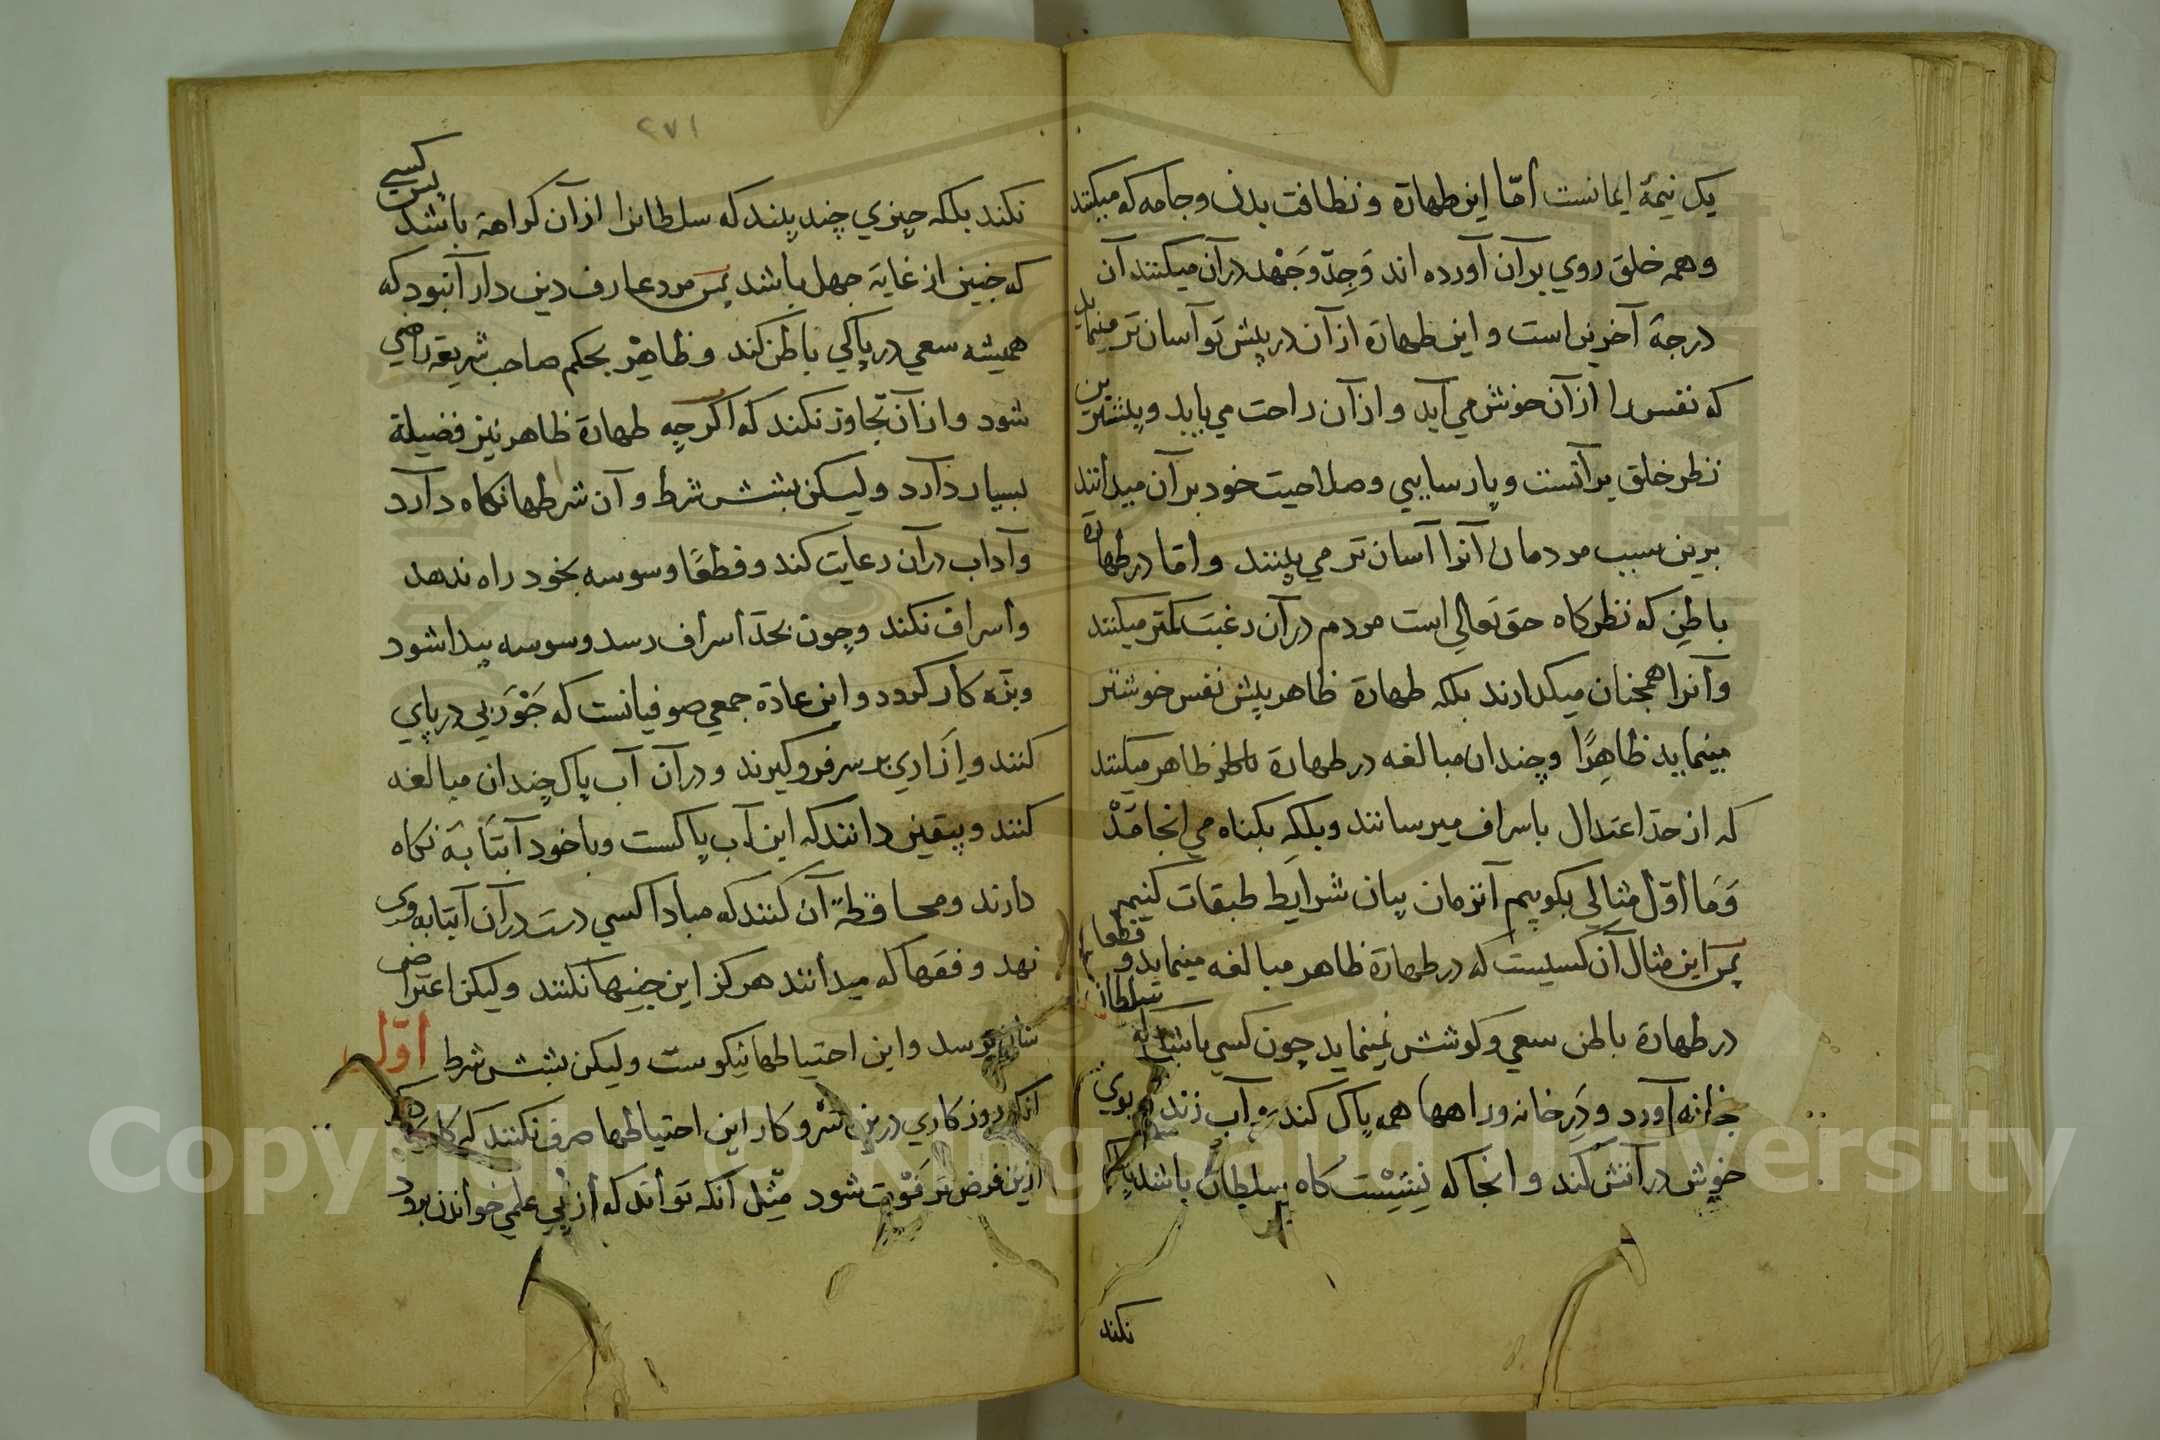 یک نیمهٔ ایمانست أمّا این طهارة و نظافت بدن و جامه که میکنند
و همه خلق روي بر آن آورده اند وَجِدّ وَجَهْد در آن میکنند آن
درجهٔ آخرین است و این طهارة از آن در پیش تو آسان تر مینماید
که نفس را از آن خوش می آید و از آن راحت می یابد و بیشترین
نظر خلق بر آنست و پارسایي و صلاحیت خود بر آن میدانند
برین سبب مردمان آنرا آسان تر می بینند و امّا در طهارة
باطن که نظرکاه حق تعالي است مردم در آن رغبت کمتر میکنند
و آنرا همچنان میکذارند بلکه طهارة ظاهر پیش نفس خوشتر
مینماید ظاهِرًا و چندان مبالغه در طهارة ظاهر میکنند
که از حدّ اعتدال باسراف میرسانند و بلکه بکناه می انجامَدْ
وَمَا أوّل مثالي بکوییم آنزمان بیان شرایط طبقات کنیم
پس این مثال آن کسیست که در طهارة ظاهر مبالغه مینماید و قطعا
در طهارة باطن سعي و کوشش نمینماید چون کسي باشد که سلطان
خانه آورد و دَرِ خانه و راهها همه پاک کند و آب زند و بوي
خوش در آتش کند و آنجا که نِشِسْت کاه سلطان باشد پاک
نکند
٢٧١
نکند بلکه چیزي چند بیند که سلطانرا از آن کراهة باشد پس کسي
که چنین از غایة جهل باشد پس مرد عارف دین دار آنبود که
همیشه سعي در پاکي باطن کند و ظاهر بحکم صاحب شریعة راضي
شود و از آن تجاوز نکند که اکر چه طهارة ظاهر نیز فضیلة
بسیار دارد ولیکن بشش شرط و آن شرطها نکاه دارد
و آداب در آن رعایت کند و قطعًا وسوسه بخود راه ندهد
و اسراف نکند و چون بحدّ اسراف رسد وسوسه پیدا شود
و بزه کار کردد و این عادة جمعي صوفیانست که جَوْرَبي در پاي
کنند و اِزاري بر سر فرو کیرند و در آن آب پاک چندان مبالغه
کنند و بیقین دانند که این آب پاکست و با خود آبتابة نکاه
دارند و محافظة آن کنند که مبادا کسي دست در آن آبتابه وی
نهد و فقها که میدانند هرکز این چنینها نکنند ولیکن اعتراض
شان نرسد و این احتیاطها نیکوست ولیکن بشش شرط اوّل
آنکه روزکاري درین شرو کار این احتیاطها صرف نکنند که کاري که
ازین فرض تر فَوْت شود مِثْل آنکه تواند که از پي علمي خواندن برود